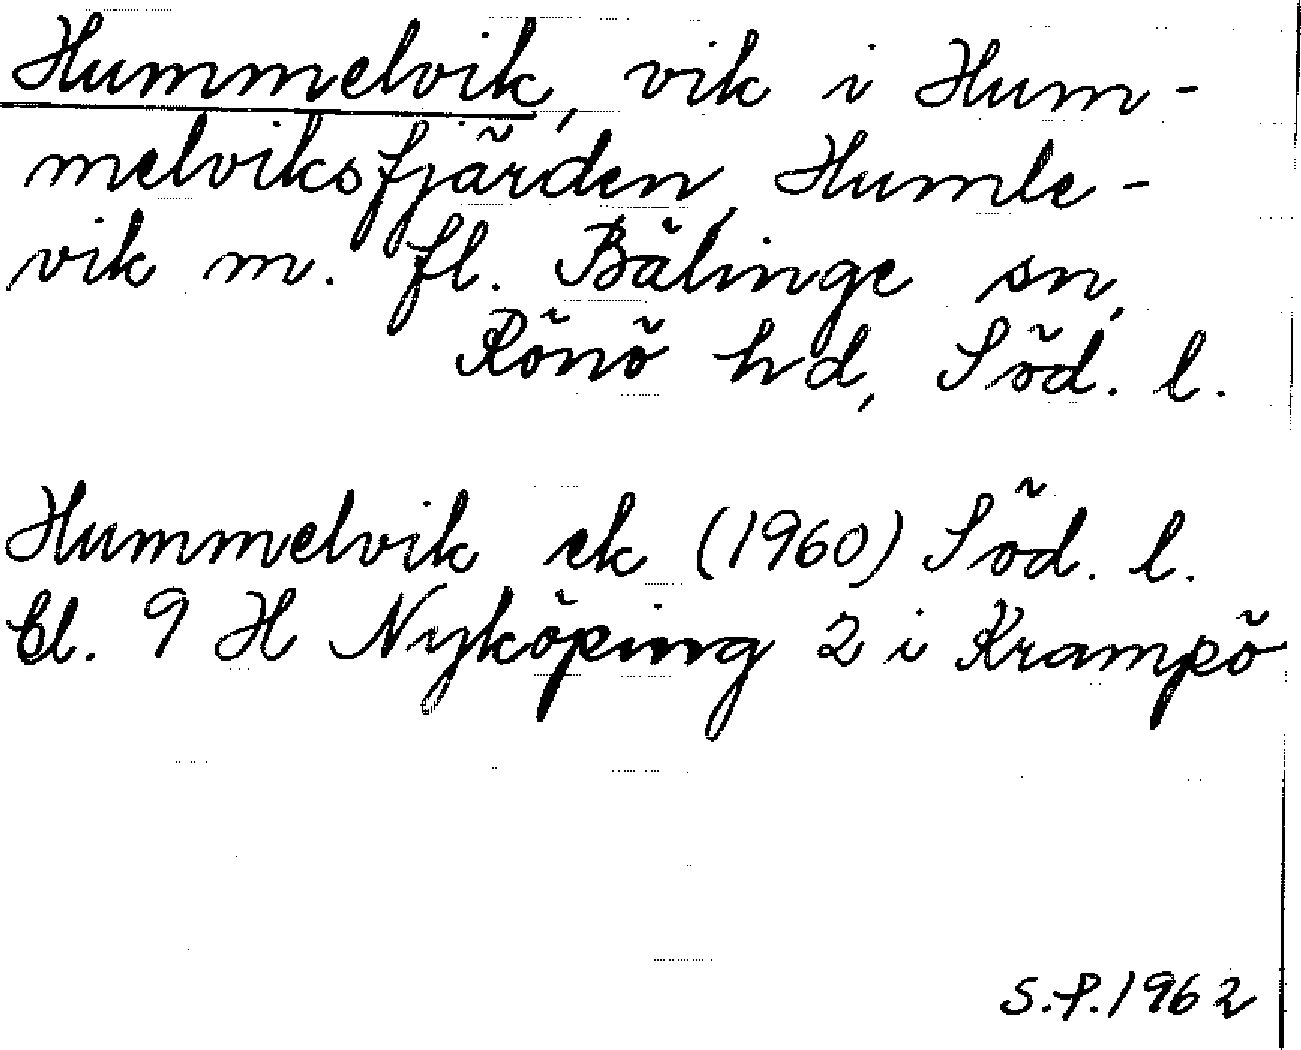 Hummelvik, vik i Hum-
melviksfjärden, Humle-
vik m. fl. Bälinge sn,
Rönö hd, Söd. l.
Hummelvik ek (1960) Söd. l.
bl. 9 H Nyköping 2 i Krampö
S.P. 1962